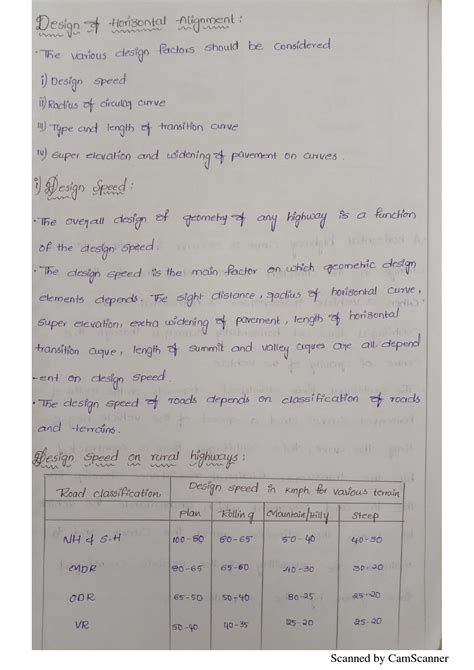 Design of Horisontal Alignment :
· The various design factors should be considered
i) Design speed
ii) Radius of circular curve
iii) Type and length of transition curve
iv) super elevation and widening of pavement on curves .
i) Design Speed :
· The overall design of geometry of any highway is a function
of the design speed
· The design speed is the main factor on which geometric design
elements depends. The sight distance , radius of horisontal curve,
super elevation, extra widening of pavement , length of horizontal
transition curve , length of summit and valley curves are all depend
-ent on design speed .
· The design speed of roads depends on classification of roads
and -terrains.
Design Speed on rural highways :
Road classification Design speed in kmph for various terrain
Plan Rolling Mountain/Hilly Steep
NH & S.H 100-80 80-65 50-40 40-30
MDR 80-65 65-50 40-30 30-20
ODR 65-50 50-40 30-25 25-20
VR 50-40 40-35 25-20 25-20
Scanned by CamScanner